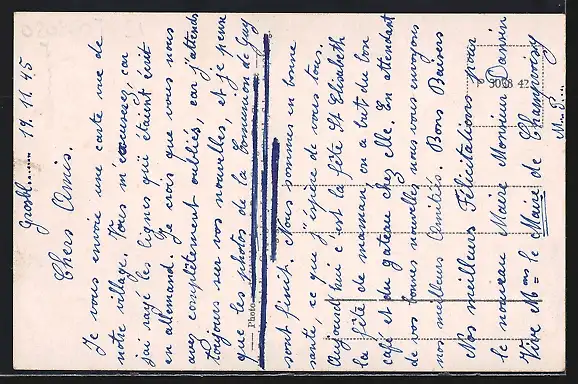 Grosbl....... 19.11.45
Chers Amis.
Je vous envoie une carte vue de
notre village. Vous m'excuserez, car
j'ai rayé les lignes qui étaient écrit
en allemand. Je crois que vous nous
avez complètement oubliés, car j'attends
toujours sur vos nouvelles, et je pense
que les photos de la Communion de Guy
sont finit. Nous sommes en bonne
santé, ce que j'éspère de vous tous.
Aujourd'hui c'est la fête St Elisabeth
la fête de maman, on a tout du bon
café et du gateau chez elle. En attendant
de vos bonnes nouvelles nous vous envoyons
nos meilleurs Amitiés. Bons Baisers
Nos meilleurs Félicitations pour
le nouveau Maire Monsieur
Vive Mons le Maire de Champvoisy
Photo
P 3068 42